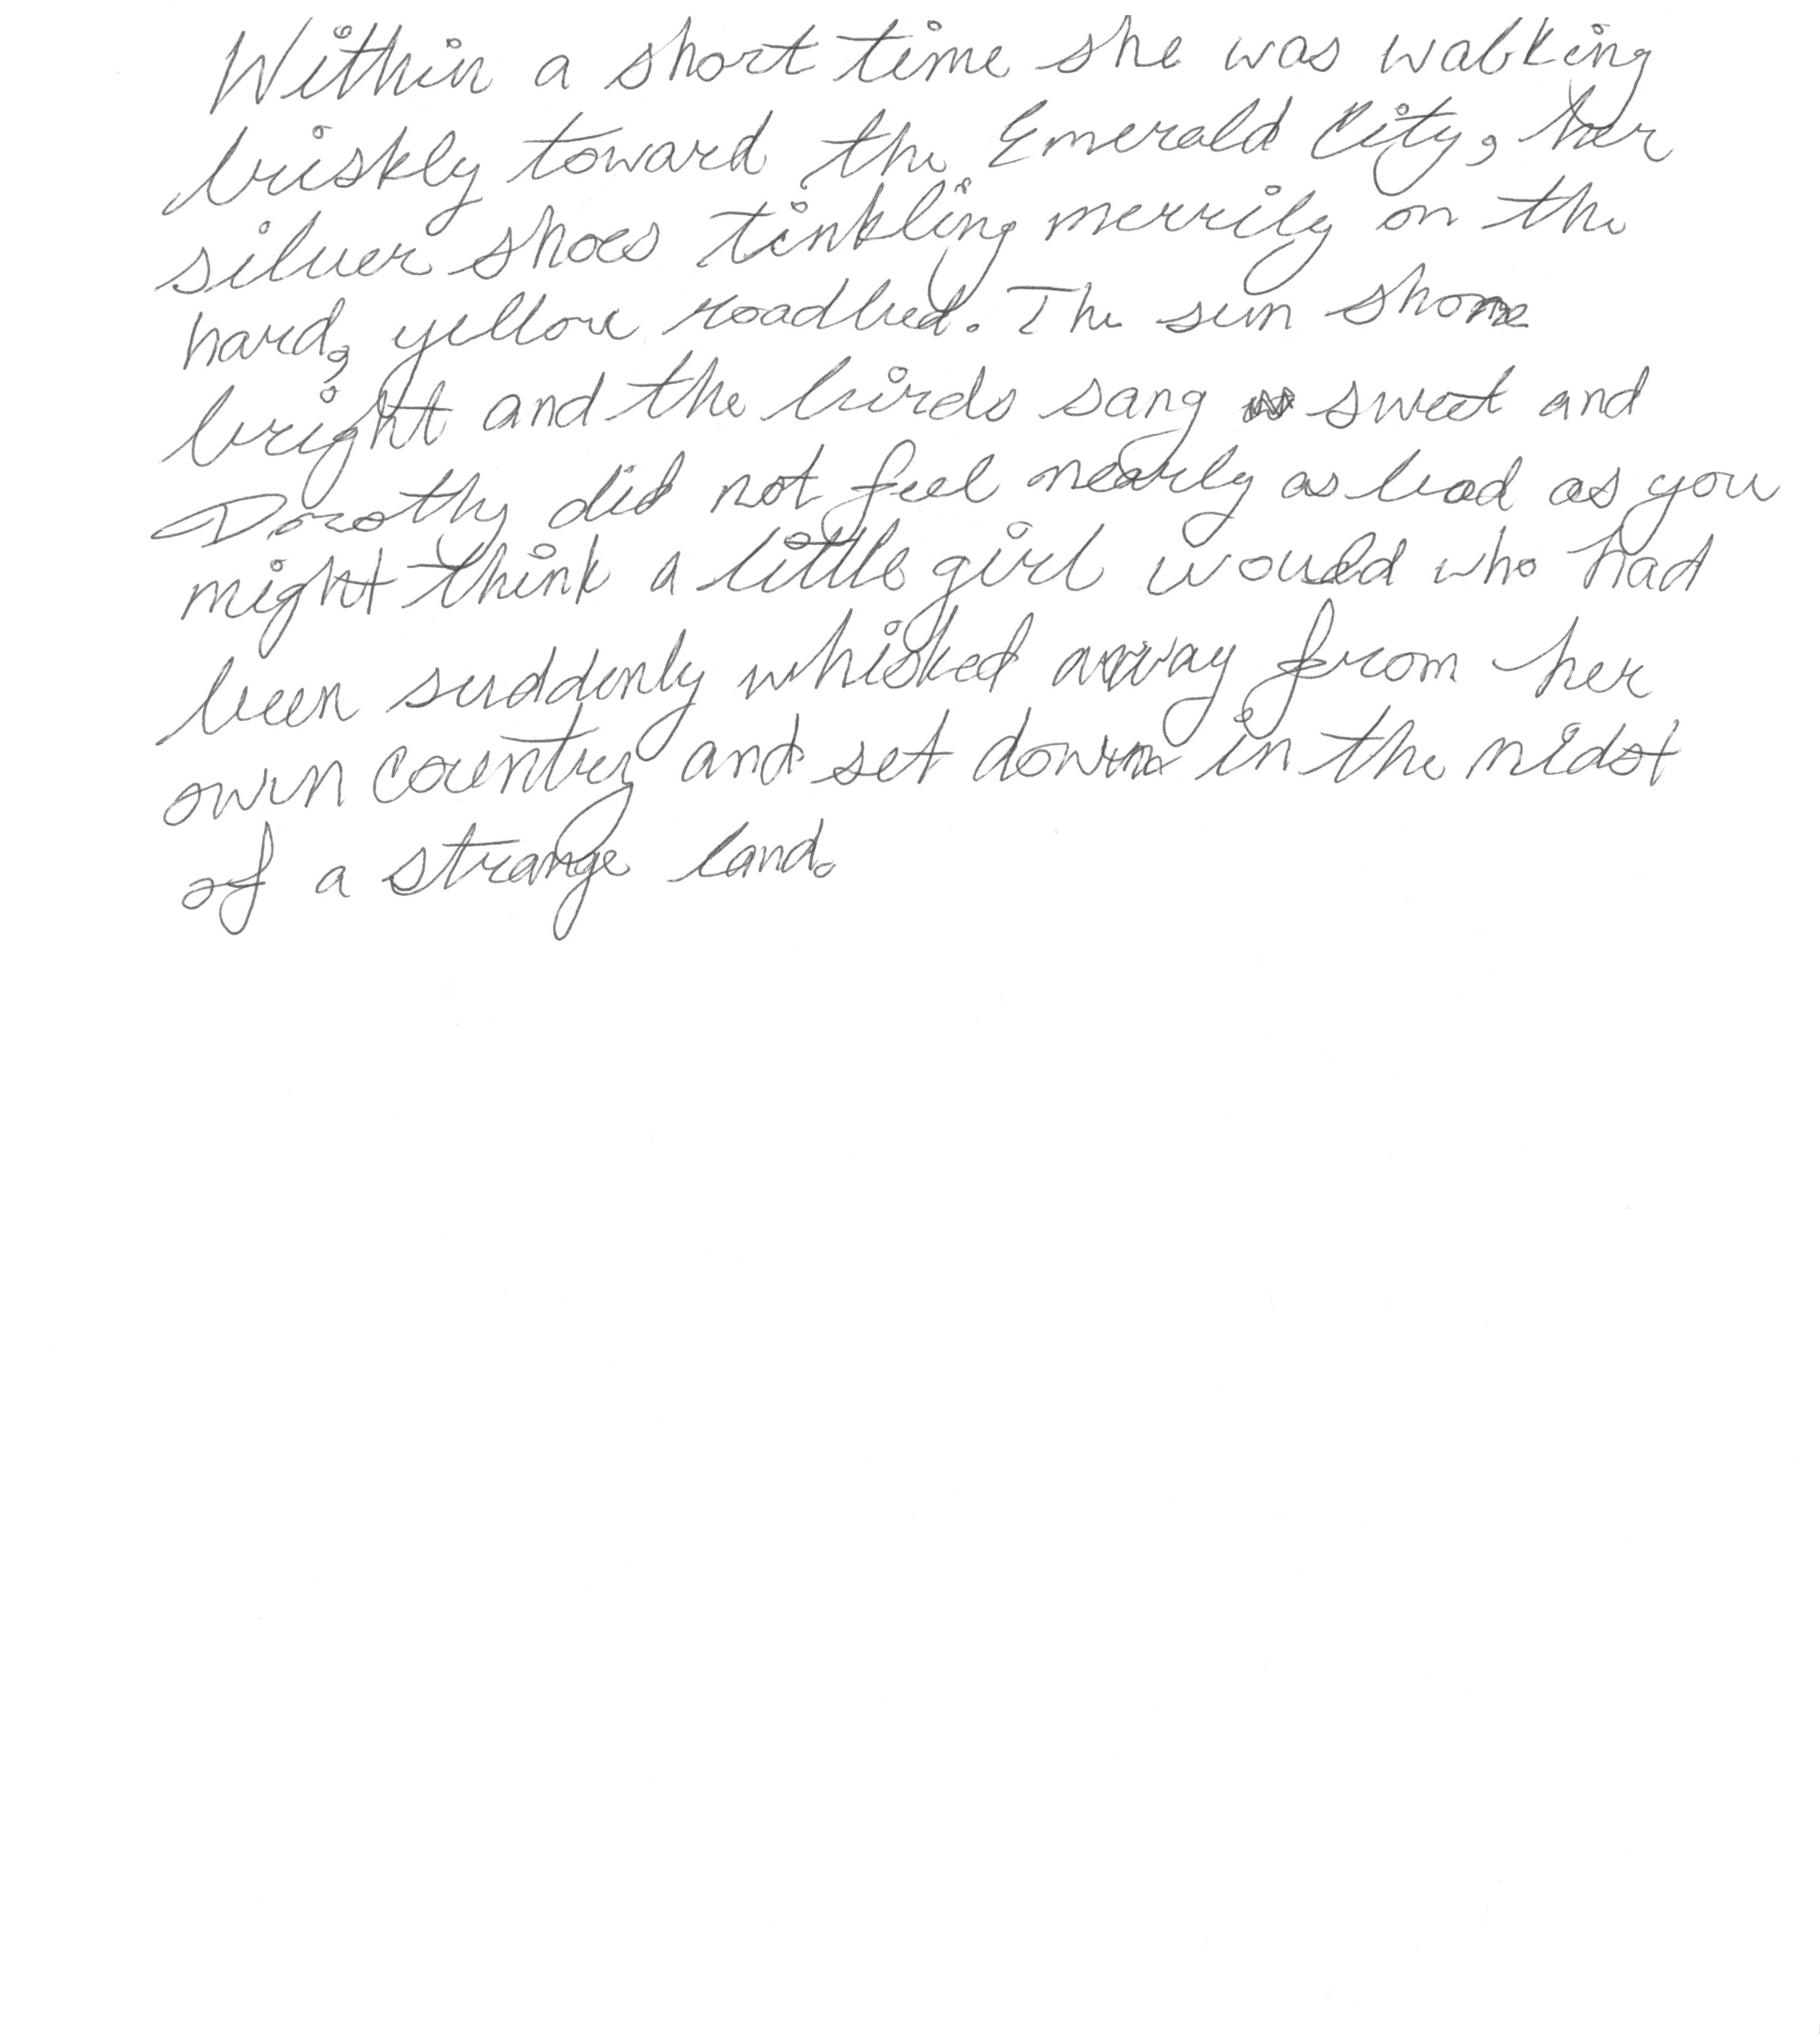 Within a short time she was walking
briskly toward the Emerald City, her
silver shoes tinkling merrily on the
hard, yellow roadbed. The sun shone
bright and the birds sang sweet and
Dorothy did not feel nearly as bad as you
might think a little girl would who had
been suddenly whisked away from her
own country and set down in the midst
of a strange land.